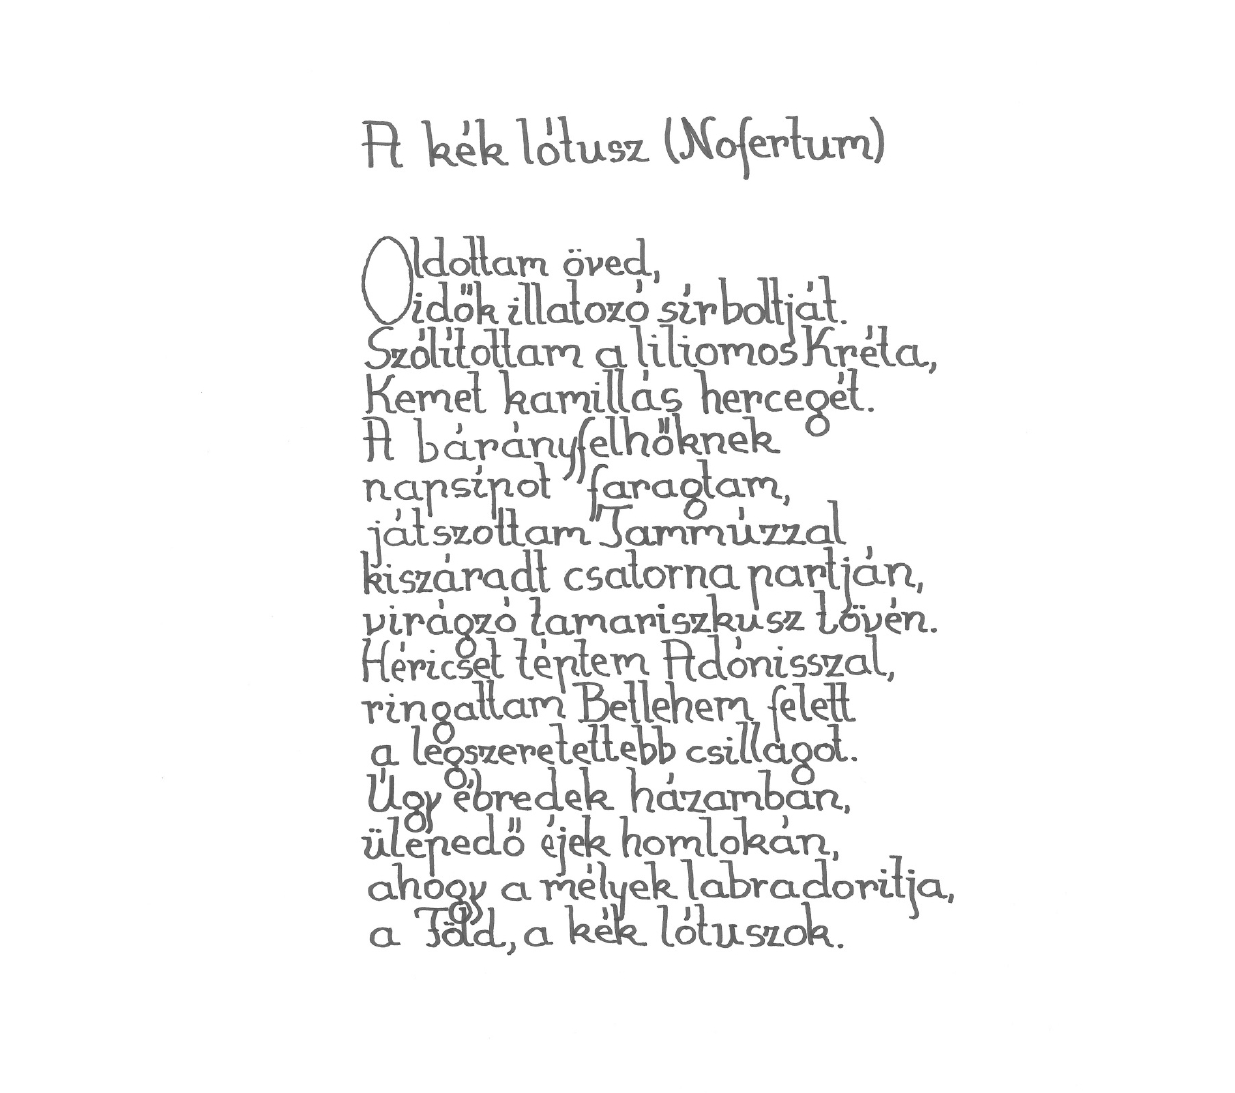 A kék lótusz (Nofertum)
Oldottam öved,
idők illatozó sírboltját.
Szólítottam a liliomos Kréta,
Kemet kamillás hercegét.
A bárányfelhőknek
napsípot faragtam,
játszottam Tammúzzal
kiszáradt csatorna partján,
virágzó tamariszkusz tövén.
Héricset téptem Adónisszal,
ringattam Betlehem felett
a legszeretettebb csillagot.
Úgy ébredek házamban,
ülepedő éjek homlokán,
ahogy a mélyek labradoritja,
a Föld, a kék lótuszok.